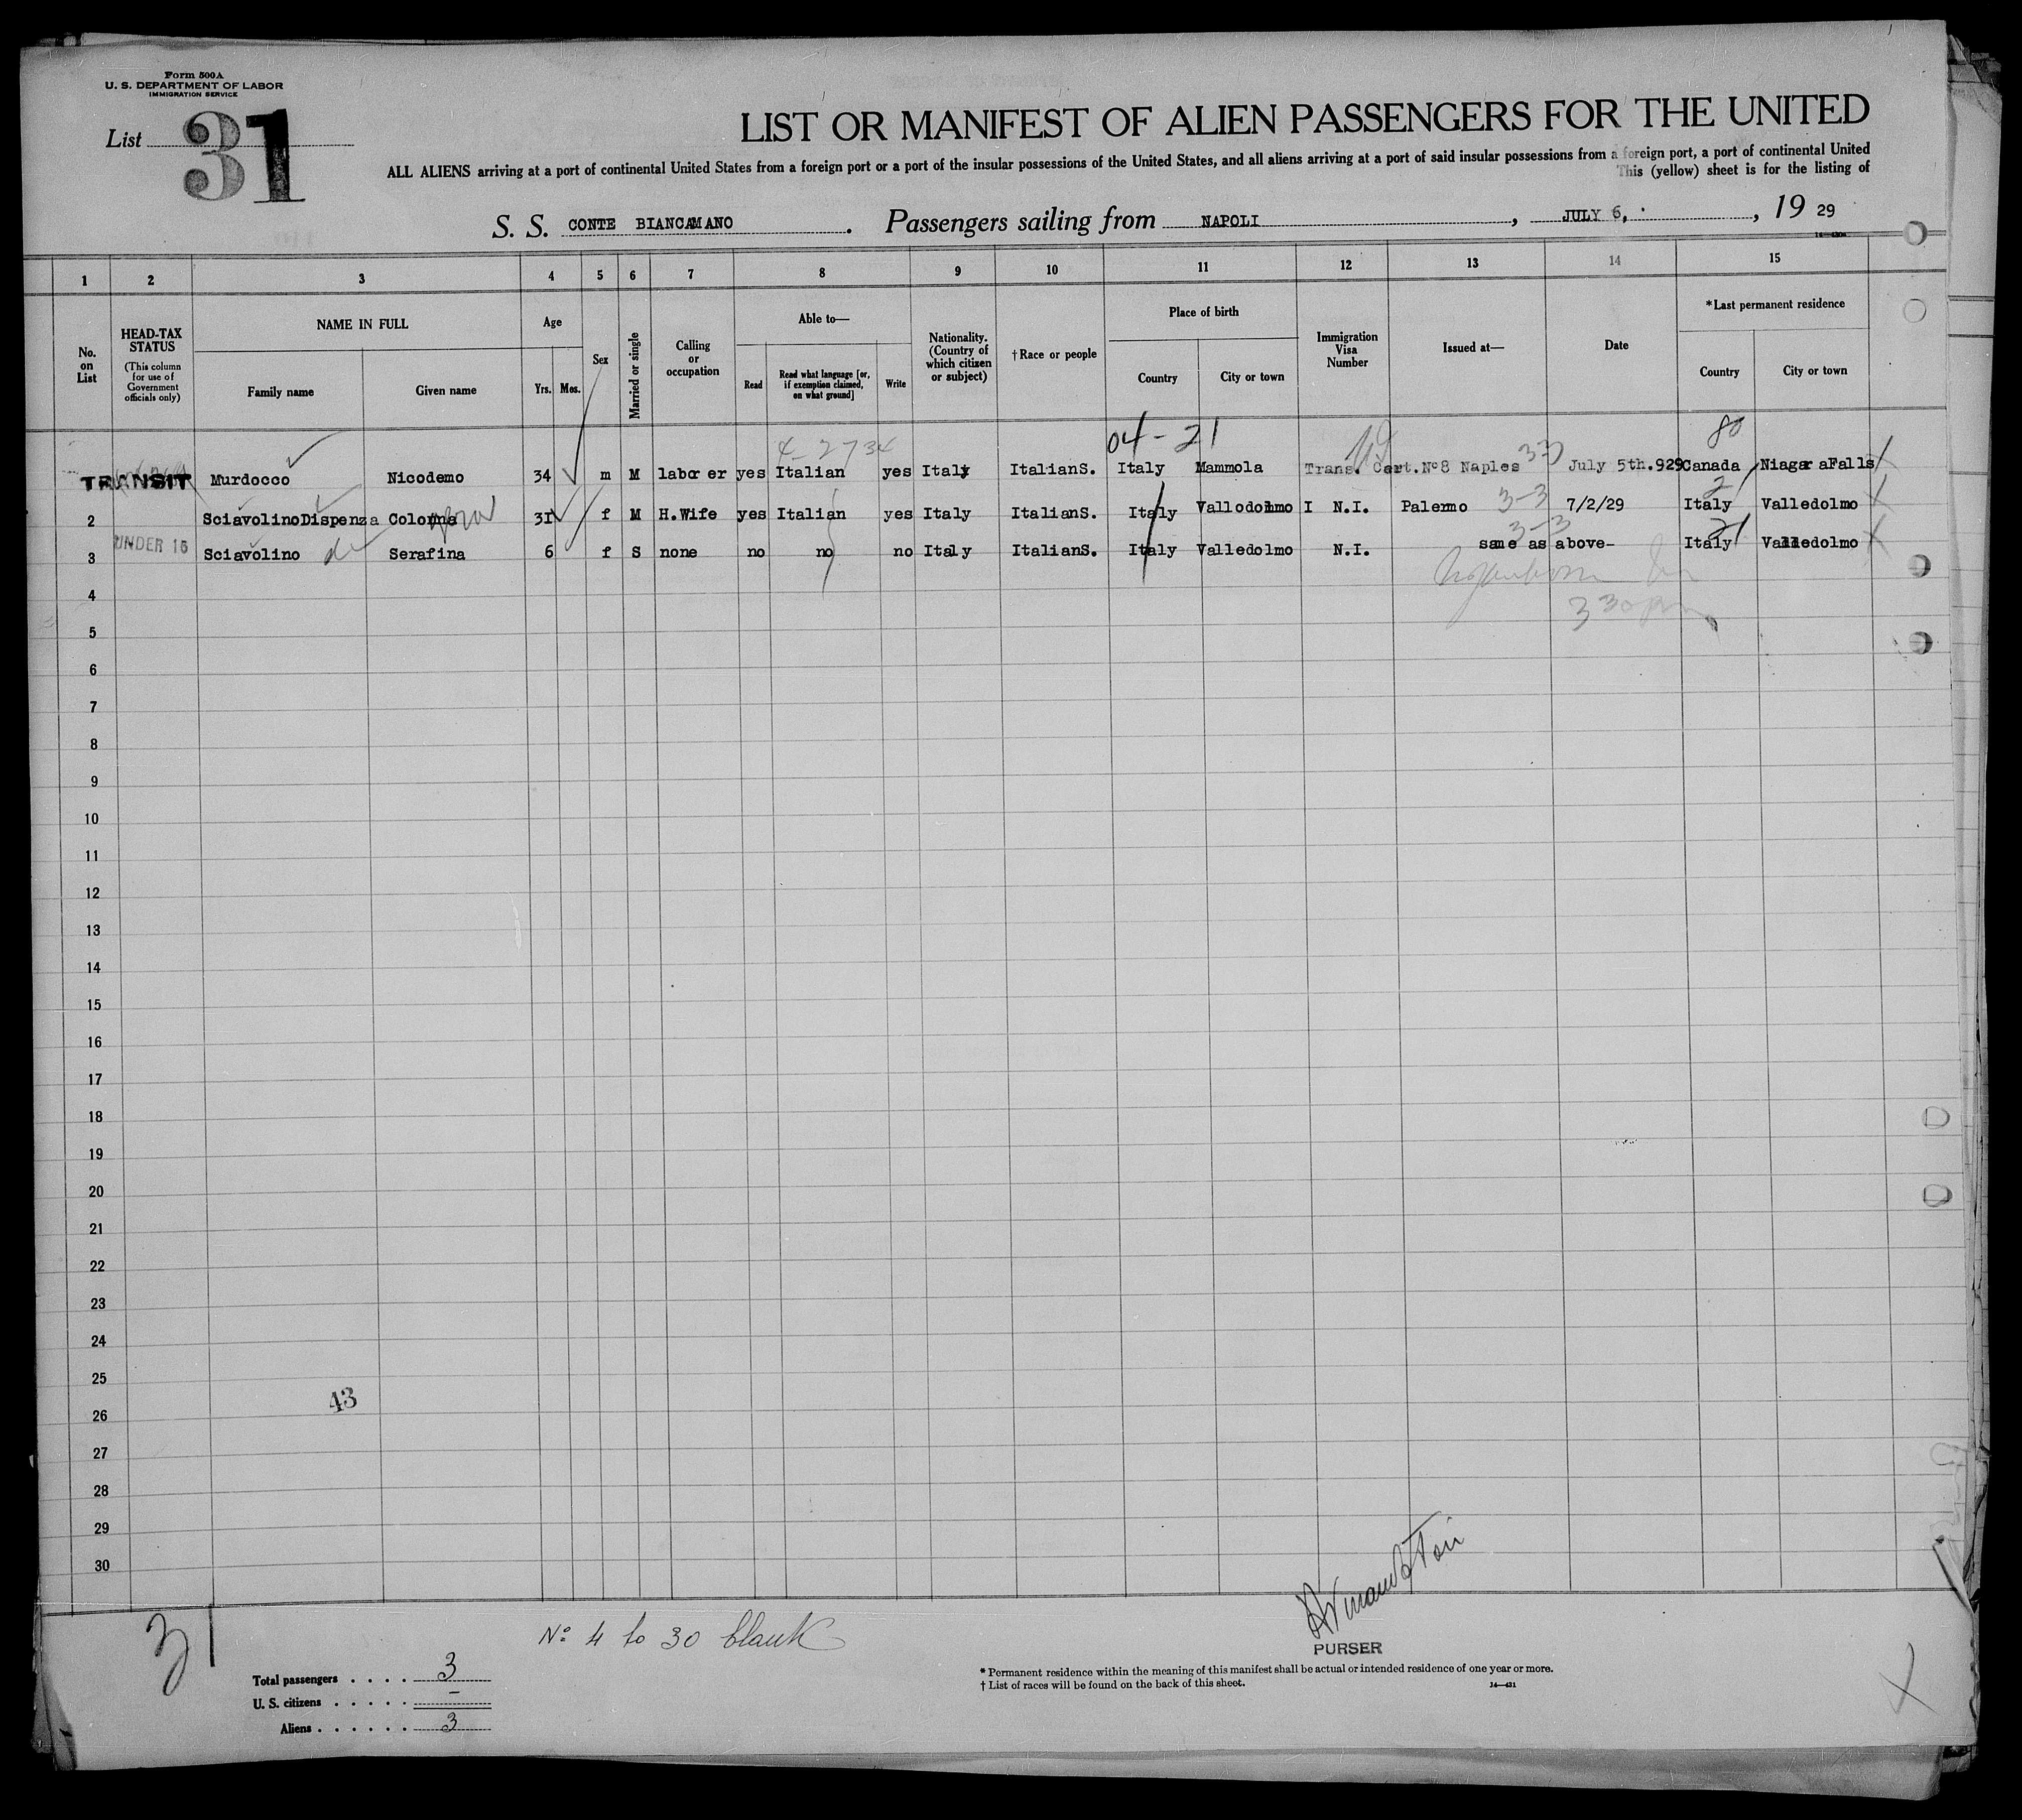 Form 500A
U. S. DEPARTMENT OF LABOR
IMMIGRATION SERVICE
List 31
LIST OR MANIFEST OF ALIEN PASSENGERS FOR THE UNITED
ALL ALIENS arriving at a port of continental United States from a foreign port or a port of the insular possessions of the United States, and all aliens arriving at a port of said insular possessions from a foreign port, a port of continental United
This (yellow) sheet is for the listing of
S. S. CONTE BIANCAMANO. Passengers sailing from NAPOLI, JULY 6, 19 29
1 2 3 4 5 6 7 8 9 10 11 12 13 14 15
No. on List
HEAD-TAX STATUS (This column for use of Government officials only)
NAME IN FULL
Family name
Given name
Age
Yrs. Mos.
Sex
Married or single
Calling or occupation
Able to—
Read
Read what language [or, if exemption claimed, on what ground]
Write
Nationality. (Country of which citizen or subject)
†Race or people
Place of birth
Country
City or town
Immigration Visa Number
Issued at—
Date
*Last permanent residence
Country
City or town
4-2734 04-21 80
TRANSIT Murdocco Nicodemo 34 m M laborer yes Italian yes Italy ItalianS. Italy Mammola Trans. Cert.Nº8 Naples July 5th.929 Canada NiagaraFalls
2 SciavolinoDispenza Colonna 31 f M H.Wife yes Italian yes Italy ItalianS. Italy Vallodolmo I N.I. Palermo 3-3 7/2/29 Italy Valledolmo
UNDER 16
3 Sciavolino Serafina 6 f S none no no no Italy ItalianS. Italy Valledolmo N.I. same as above- Italy Valledolmo
3-3
21
4
330 pm
5
6
7
8
9
10
11
12
13
14
15
16
17
18
19
20
21
22
23
24
25
43
26
27
28
29
30
31
Nº 4 to 30 blank
PURSER
Total passengers . . . . 3
U. S. citizens . . . . . –
Aliens . . . . . . 3
* Permanent residence within the meaning of this manifest shall be actual or intended residence of one year or more.
† List of races will be found on the back of this sheet.
14—431